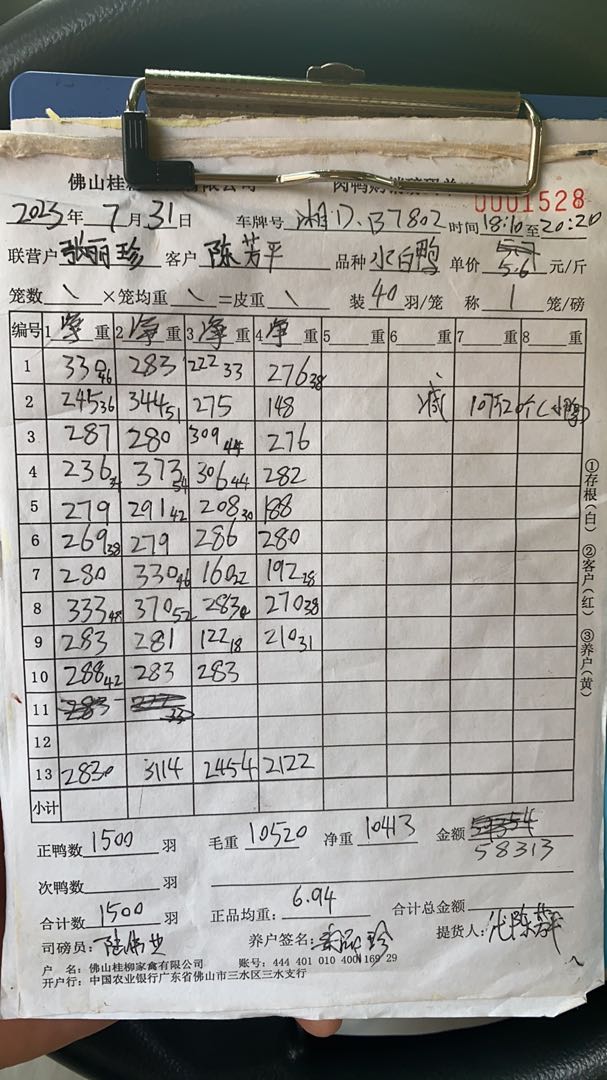 佛山桂柳 有限公司 肉鸭购销磅码单
0001528
2023年 7月31日 车牌号 湘D.B7802 时间 18:10至20:20
联营户 张丽珍 客户 陈芳平 品种 水白鸭 单价 5.6 元/斤
笼数 \ ×笼均重 \ =皮重 \ 装 40 羽/笼 称 1 笼/磅
编号 1 净 重 2 净 重 3 净 重 4 净 重 5 重 6 重 7 重 8 重
1 330 46 283 222 33 276 38
2 245 36 344 51 275 148 减 107斤20个(小鸭)
3 287 280 309 44 276
4 236 34 373 54 306 44 282
5 279 291 42 208 30 188
6 269 38 279 286 280
7 280 330 46 160 22 192 28
8 333 48 370 52 283 270 38
9 283 281 122 18 210 31
10 288 42 283 283
11 283
12
13 2830 3114 2454 2122
小计
①存根(白) ②客户(红) ③养户(黄)
正鸭数 1500 羽 毛重 10520 净重 10413 金额 58313
次鸭数 羽
合计数 1500 羽 正品均重: 6.94 合计总金额
司磅员: 养户签名: 珍 提货人: 代陈芳平
户 名: 佛山桂柳家禽有限公司 账号: 444 401 010 400 169 29
开户行: 中国农业银行广东省佛山市三水区三水支行